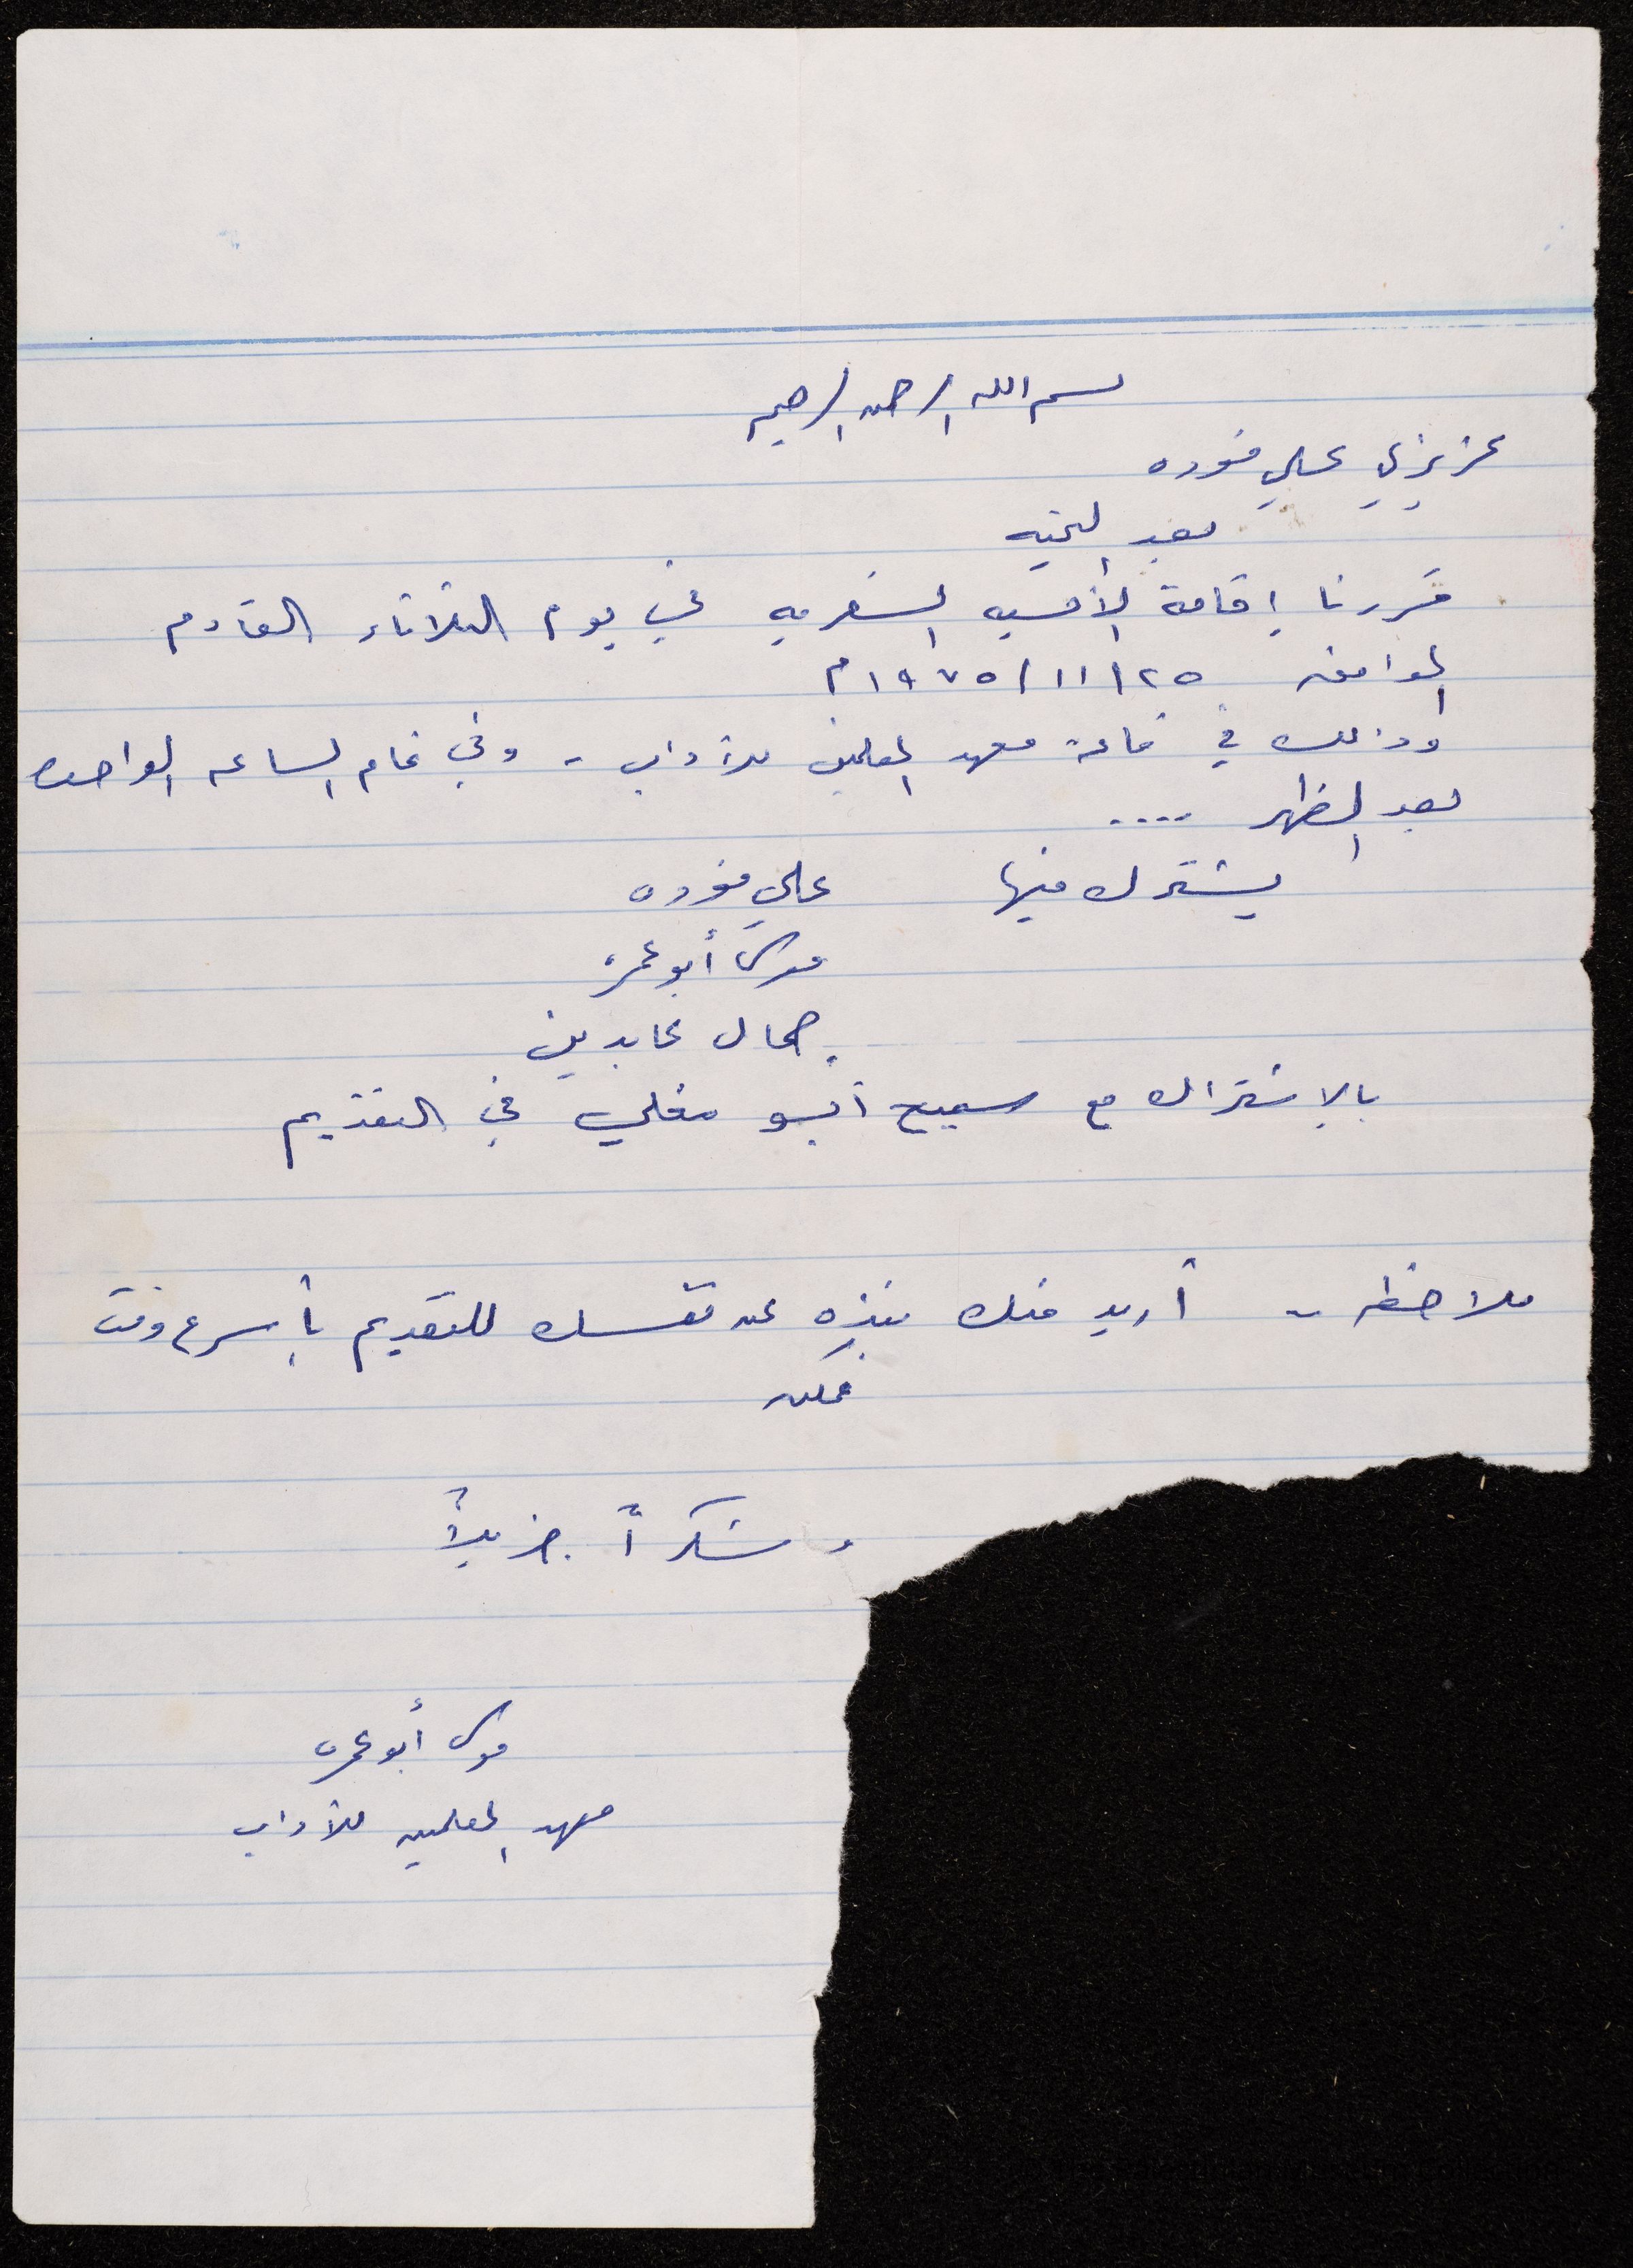 بسم الله الرحمن الرحيم
عزيزي علي فوده
بعد التحيه
قررنا إقامة الأمسيه الشعريه في يوم الثلاثاء القادم
الموافق ٢٥/١١/١٩٧٥م
وذلك في قاعة معهد المعلمين للآداب - وفي تمام الساعه الواحده
بعد الظهر ....
يشترك فيها علي فوده
موسى أبو عمره
جمال عابدين
بالإشتراك مع سميح أبو مغلي في التقديم
ملاحظه - أريد منك نبذه عن نفسك للتقديم بأسرع وقت
ممكن
وشكراً جزيلاً
موسى أبو عمره
معهد المعلمين للآداب